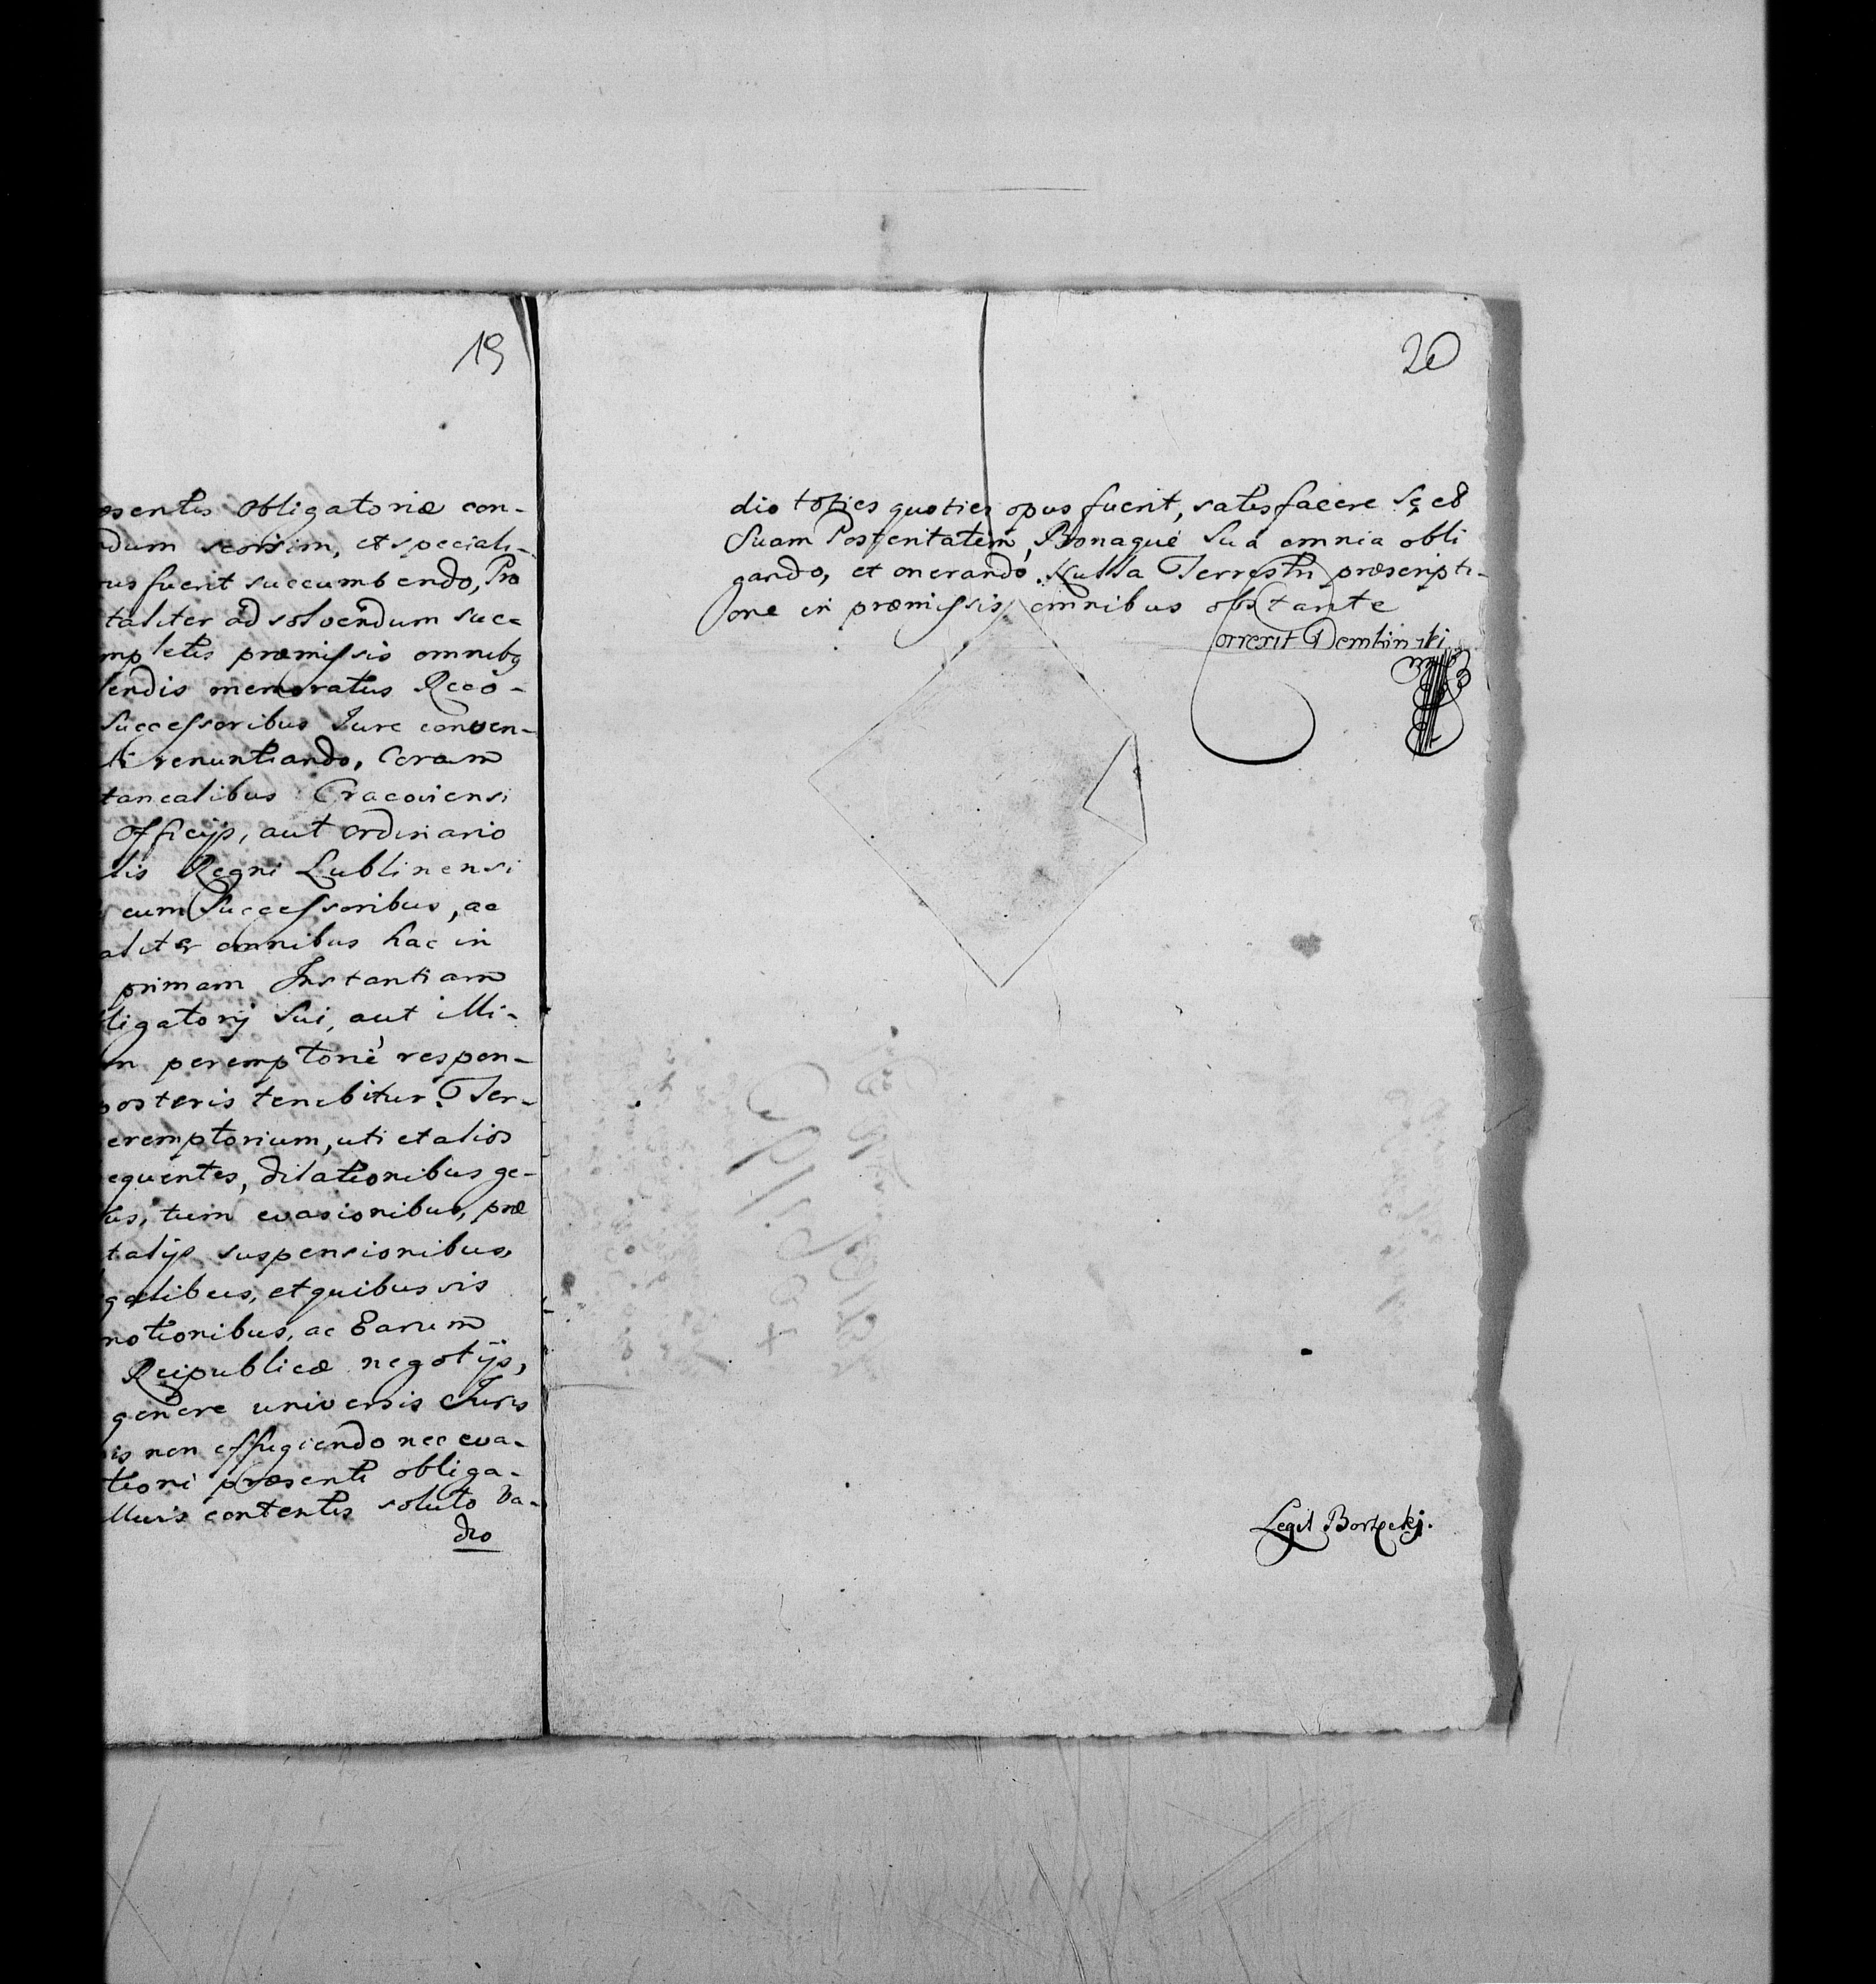 19
esentis Obligatoriæ con-
dum seorsim, et speciali-
us fuerit succumbendo, Pro
taliter ad solvendum suc-
mpletis præmissis omnibq
lendis memoratus Reco-
Successoribus Jure conven-
ti renuntiando, Coram
tanealibus Cracoviensi
Officijs, aut ordinario
lis Regni Lublinensi
cum Successoribus, ac
aliter omnibus hac in
primam Instantiam
ligatorij Sui, aut illi-
m peremptorie respon-
posteris tenebitur. Ter-
eremptorium, uti et alios
equentes, dilationibus ge-
us, tum evasionibus, præ
talijs suspensionibus,
galibus, et quibusvis
motionibus, ac Earum
Reipublicæ negotijs,
genere universis Juris
is non effugiendo nec eva-
tioni præsenti obliga-
lluis contentis soluto va-
dio
20
dio toties quoties opus fuerit, satisfacere Se et
Suam Posteritatem, Bonaque Sua omnia obli
gando, et onerando. Nulla Terrestri præscripti-
one in præmissis omnibus obstante
Correxit Dembinski
Legit Borzęckj.